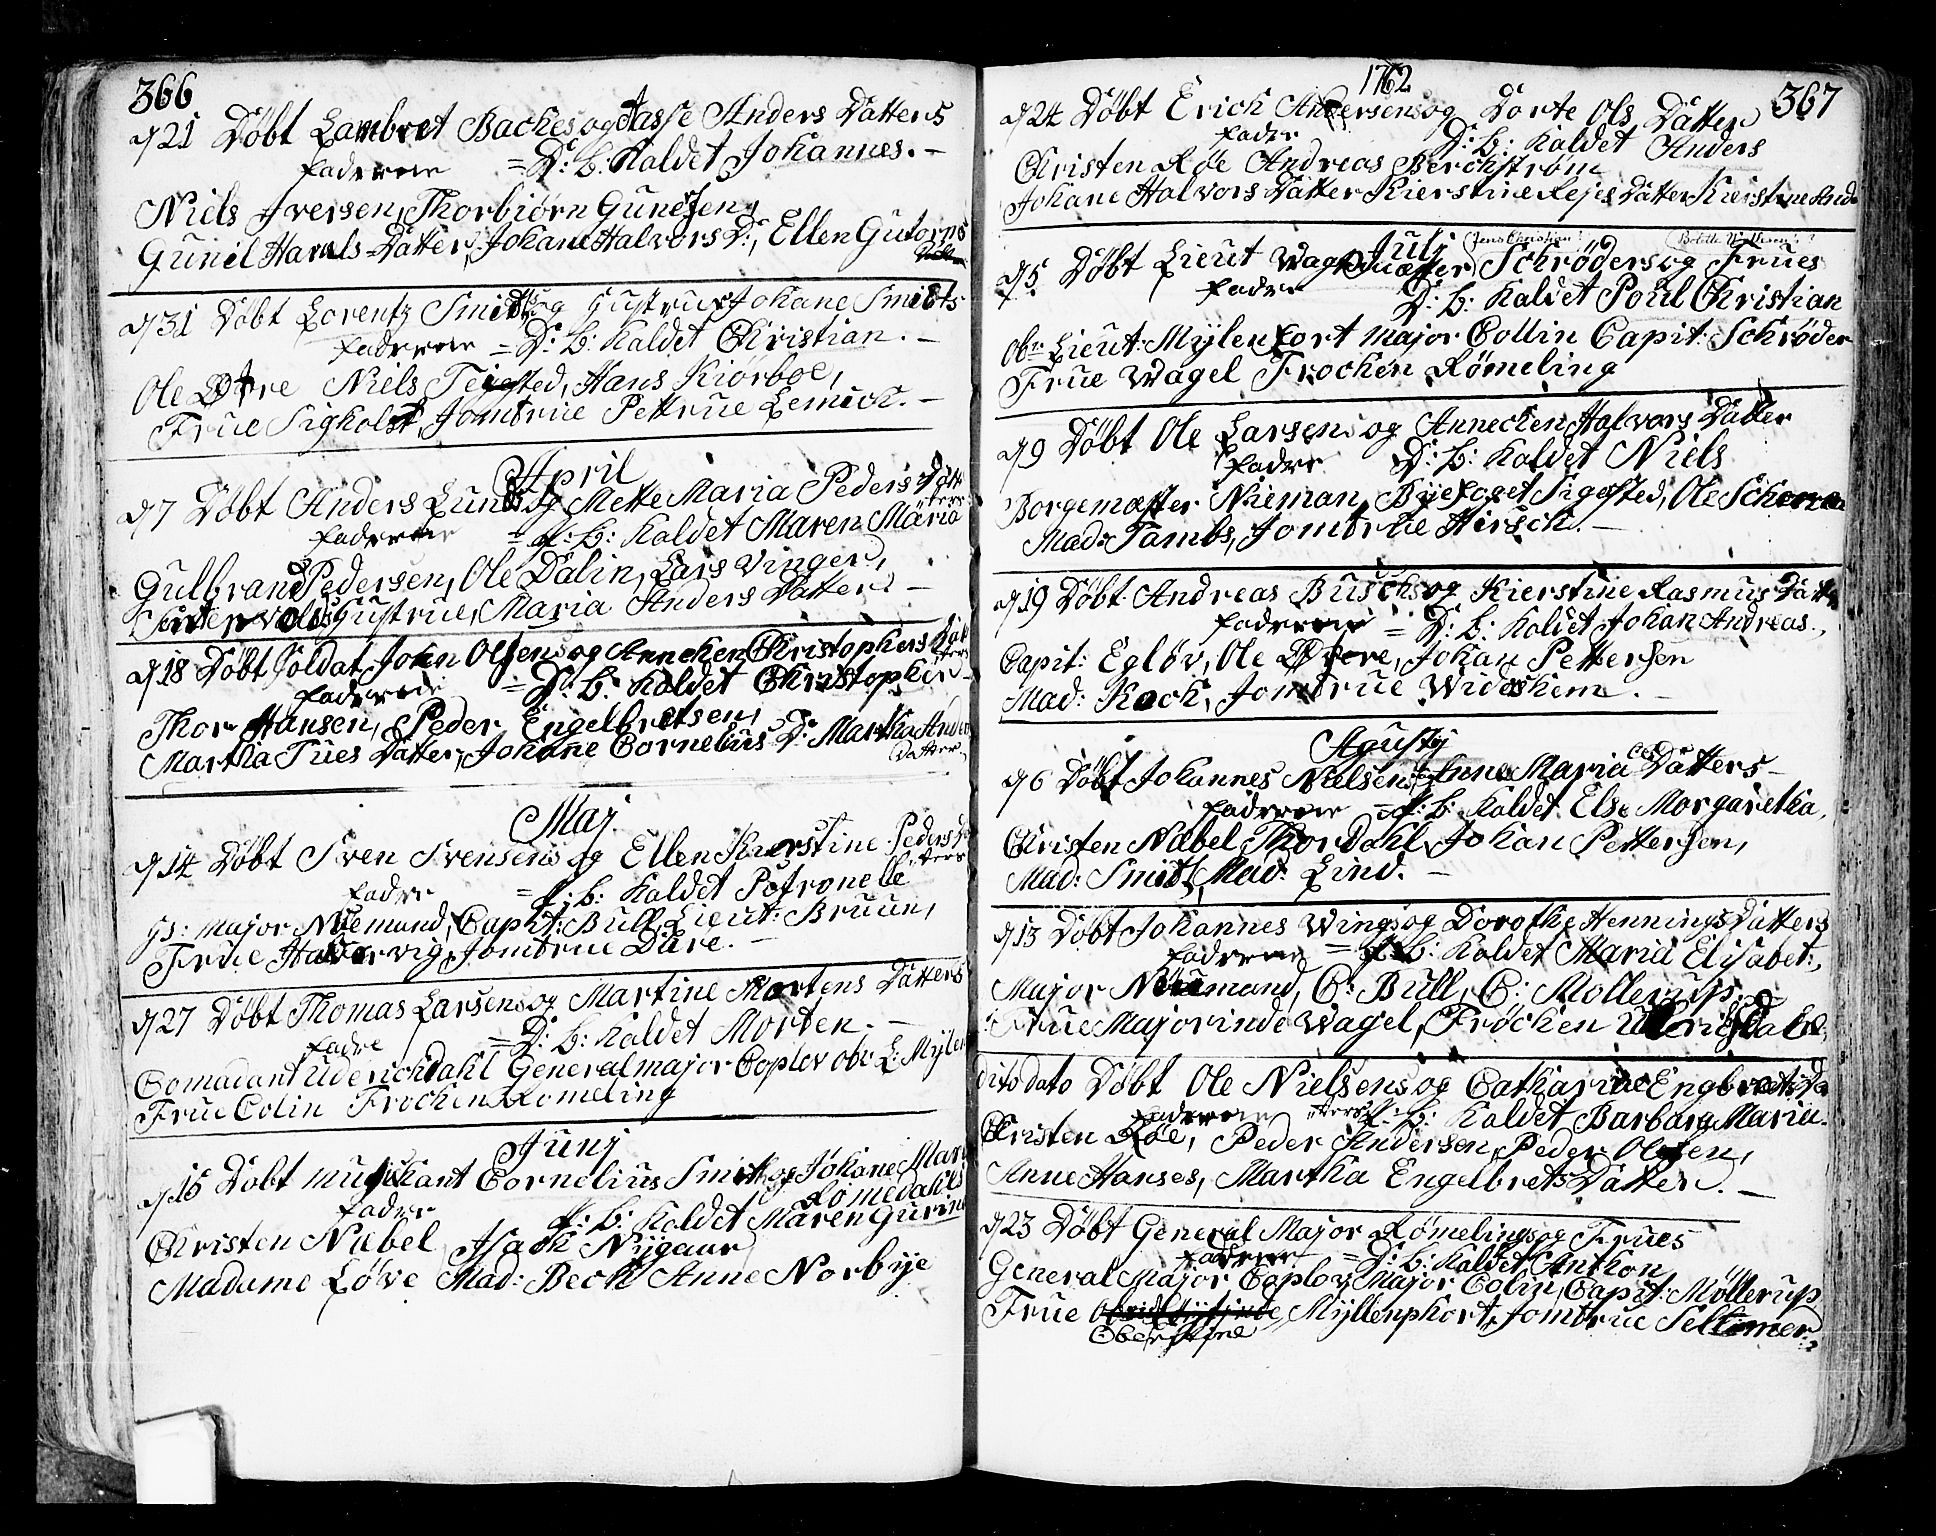 366
d 21 Døbt Lambret Backes og Aasse Anders Datters
Faderne = D: B: Kaldet Johannes. –
Niels Iversen, Thorbiørn Gundsen,
Gunil Havels Datter, Johane Halvors D:, Ellen Gutorms
Datter
d 31 Døbt Lorentz Smidts og Hustrue Johane Smidts
Faderne = D: B: Kaldet Christian. –
Ole Østre Niels Teigsted, Hans Kiørboe,
Frue Sigholt, Jomfrue Pettrue Lemich. –
April
d 7 Døbt Anders Lunds og Mette Maria Peders Datt
ters
Faderne = P: B: Kaldet Maren Maria
Gulbrand Pedersen, Ole Dalin, Lars Vinger,
Hustrue, Maria Anders Datter. –
d 18 Døbt Soldat John Olsens og Annecken Christophers Dat
ters
Faderne = D: B: Kaldet Christopher –
Thor Hansen, Peder Engelbretsen,
Martha Tues Datter, Johane Cornelius D: Martha Anders
Datter.
Maj
d 14 Døbt Sven Svensens og Ellen Kierstine Peders D
atters
Fadre = P: B: Kaldet Petronele
Gs: Major Niemand, Capit: Bull, Lieut: Bruun,
Frue Hardervig, Jomfrue Dure. –
d 27 Døbt Thomas Larsens og Martine Mortens Datters
Fadre = D: B: Kaldet Morten. –
Comadant Uderichdahl Generalmajor Coplov Obr L: Mylen
Frue Colin Frochen Romeling
Junj
d 15 Døbt Musikant Cornelius Smit og Johane Mari
Romedahls
Fadre P: B: Kaldet Maren Gurine
Christen Næbel Isach Nygaar
Madame Løve Mad: Bech Anne Norbye
1762
367
d 24 Døbt Erich Andersens og Dorte Ols Datter
Fadre D: B: Kaldet Anders
Christen Røe Andreas Berchstrøm
Johane Halvors Datter Kierstine Rejes Datter Kierstine And
Julj
(Jens Christian)
d 5 Døbt Lieut Wagenmæster Schrøders og Frues
Fadre D: B: Kaldet Poul Christian
Obr Lieut: Mylenfort Major Collin Capit: Schrøder
Frue Wagel Frochen Rømeling
d 9 Døbt Ole Larsens og Annecken Halvors Datter
Fadre D: B: Kaldet Niels
Borgemæster Nieman, Byefoget Sigested, Ole Scheren
Mad: Tambs, Jomfrue Hirsch. –
d 19 Døbt Andreas Busch og Kierstine Rasmus Datt
Faderne = D: B: Kaldet Johan Andreas.
Capit: Egløv, Ole Østre, Johan Pettersen
Mad: Koch, Jomfrue Widskem. –
Agustj
d 6 Døbt Johannes Nielsens og Anne Maria Ols Datters –
Faderne = P: B: Kaldet Else Margaretha,
Christen Næbel, Thor Dahl, Johan Pettersen,
Mad: Smidt, Mad: Lind. –
d 13 Døbt Johannes Wings og Dorothe Hennings Datters
Faderne = P: B: Kaldet Maria Elisabet.
Major Niemand, C: Bull, C: Mollerup,
Frue Majorinde Wagel, Frøchen Ulerigsdahl,
dito dato Døbt Ole Nielsens og Catharine Engbrets Da
Faderne tters P: B: Kaldet Barbara Maria.
Christen Røe, Peder Andersen, Peder Olsen,
Anne Hanses, Martha Engelbrets Datter. –
d 23 Døbt General Major Rømelings og Frues
Faderne = D: B: Kaldet Anthon
General Major Caplov, Major Colin, Capit: Møllerup
Frue Myllenphort, Jomfrue Selmer.
Oberstine